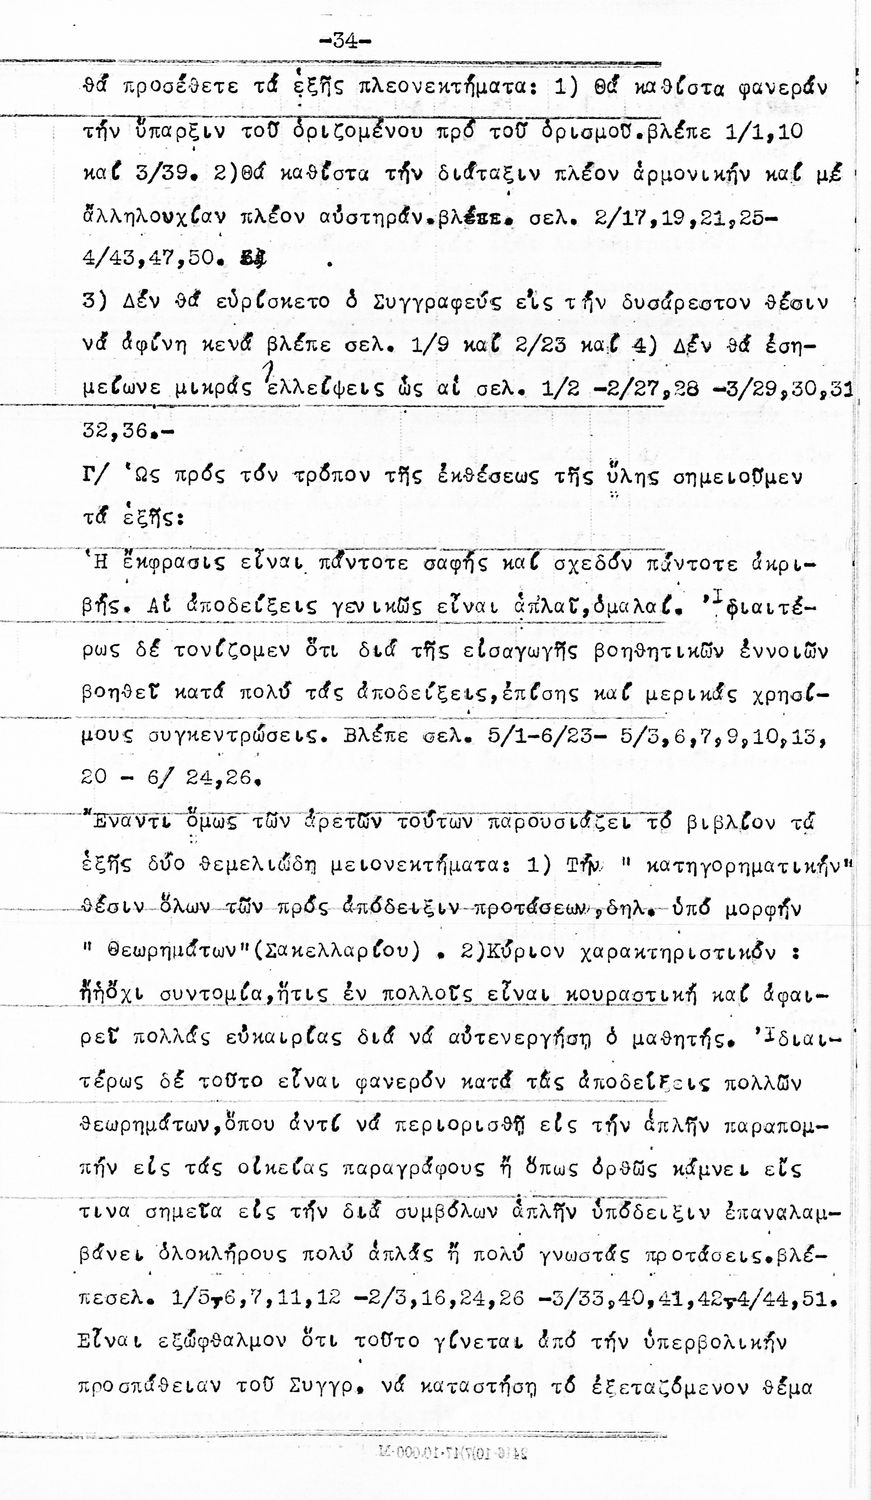 -34-
θά προσέθετε τά ἑξῆς πλεονεκτήματα: 1) Θά καθίστα φανεράν
τήν ὕπαρξιν τοῦ ὁριζομένου πρό τοῦ ὁρισμοῦ.βλέπε 1/1,10
καί 3/39. 2)Θά καθίστα τήν διάταξιν πλέον ἁρμονικήν καί μέ
ἀλληλουχίαν πλέον αὐστηράν.βλέπε. σελ. 2/17,19,21,25-
4/43,47,50.
3) Δέν θά εὑρίσκετο ὁ Συγγραφεύς εἰς τήν δυσάρεστον θέσιν
νά ἀφίνη κενά βλέπε σελ. 1/9 καί 2/23 καί 4) Δέν θά ἐση-
μείωνε μικράς ἐλλείψεις ὡς αἱ σελ. 1/2 -2/27,28 -3/29,30,31
32,36.-
Γ/ Ὡς πρός τόν τρόπον τῆς ἐκθέσεως τῆς ὕλης σημειοῦμεν
τά ἑξῆς:
Ἡ ἔκφρασις εἶναι πάντοτε σαφής καί σχεδόν πάντοτε ἀκρι-
βής. Αἱ ἀποδείξεις γενικῶς εἶναι ἁπλαῖ,ὁμαλαί. Ἰδιαιτέ-
ρως δέ τονίζομεν ὅτι διά τῆς εἰσαγωγῆς βοηθητικῶν ἐννοιῶν
βοηθεῖ κατά πολύ τάς ἀποδείξεις,ἐπίσης καί μερικάς χρησί-
μους συγκεντρώσεις. Βλέπε σελ. 5/1-6/23- 5/3,6,7,9,10,13,
20 - 6/ 24,26.
Ἔναντι ὅμως τῶν ἀρετῶν τούτων παρουσιάζει τό βιβλίον τά
ἑξῆς δύο θεμελιώδη μειονεκτήματα: 1) Τήν " κατηγορηματικήν"
θέσιν ὅλων τῶν πρός ἀπόδειξιν προτάσεων,δηλ. ὑπό μορφήν
" Θεωρημάτων"(Σακελλαρίου) . 2)Κύριον χαρακτηριστικόν :
ἤἡὄχι συντομία,ἥτις ἐν πολλοῖς εἶναι κουραστική καί ἀφαι-
ρεῖ πολλάς εὐκαιρίας διά νά αὐτενεργήση ὁ μαθητής. Ἰδιαι-
τέρως δέ τοῦτο εἶναι φανερόν κατά τάς ἀποδείξεις πολλῶν
θεωρημάτων,ὅπου ἀντί νά περιορισθῇ εἰς τήν ἁπλῆν παραπομ-
πήν εἰς τάς οἰκείας παραγράφους ἤ ὅπως ὀρθῶς κάμνει εἴς
τινα σημεῖα εἰς τήν διά συμβόλων ἁπλῆν ὑπόδειξιν ἐπαναλαμ-
βάνει ὁλοκλήρους πολύ ἁπλάς ἤ πολύ γνωστάς προτάσεις.βλέ-
πεσελ. 1/5,6,7,11,12 -2/3,16,24,26 -3/33,40,41,42,4/44,51.
Εἶναι εξώφθαλμον ὅτι τοῦτο γίνεται ἀπό τήν ὑπερβολικήν
προσπάθειαν τοῦ Συγγρ. νά καταστήση τό ἐξεταζόμενον θέμα